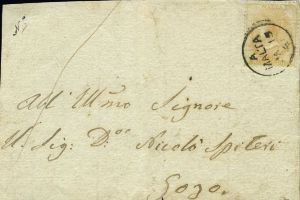 A
MALTA
Ad Ill'mo Signore
Il Sig: D.or Nicolò Spiteri
Gozo.